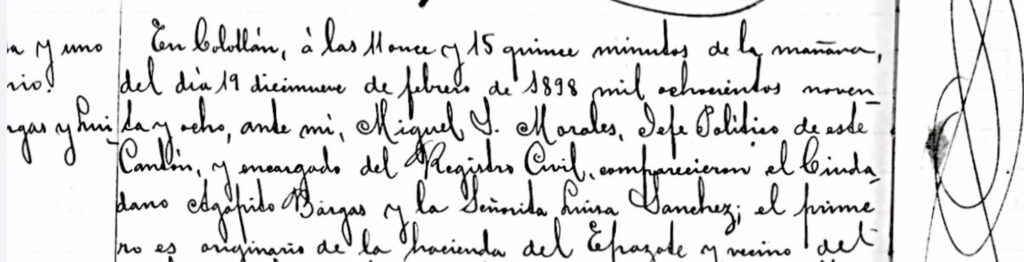 a y uno
nio.
rgas y Lui
En Colotlán, à las 11 once y 15 quince minutos de la mañana,
del día 19 diecinueve de febrero de 1898 mil ochocientos noven_
ta y ocho, ante mi, Miguel Y. Morales, Jefe Politico de este
Cantón, y encargado del Registro Civil, comparecieron el Ciuda_
dano Agapito Bárgas y la Señorita Luisa Sanchez; el prime_
ro es originario de la hacienda del Epazote y vecino del